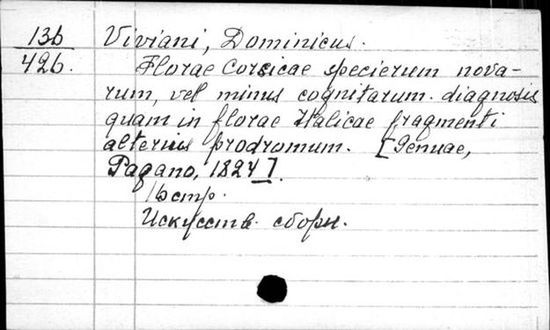 13b Viviani, Dominicus.
426. Florae Corsicae specierum nova-
rum, vel minus cognitarum diagnosis
quam in florae Italicae fragmenti
alterius prodromum. [Genuae,
Pagano, 1824].
16 стр.
Искусств. сборн.